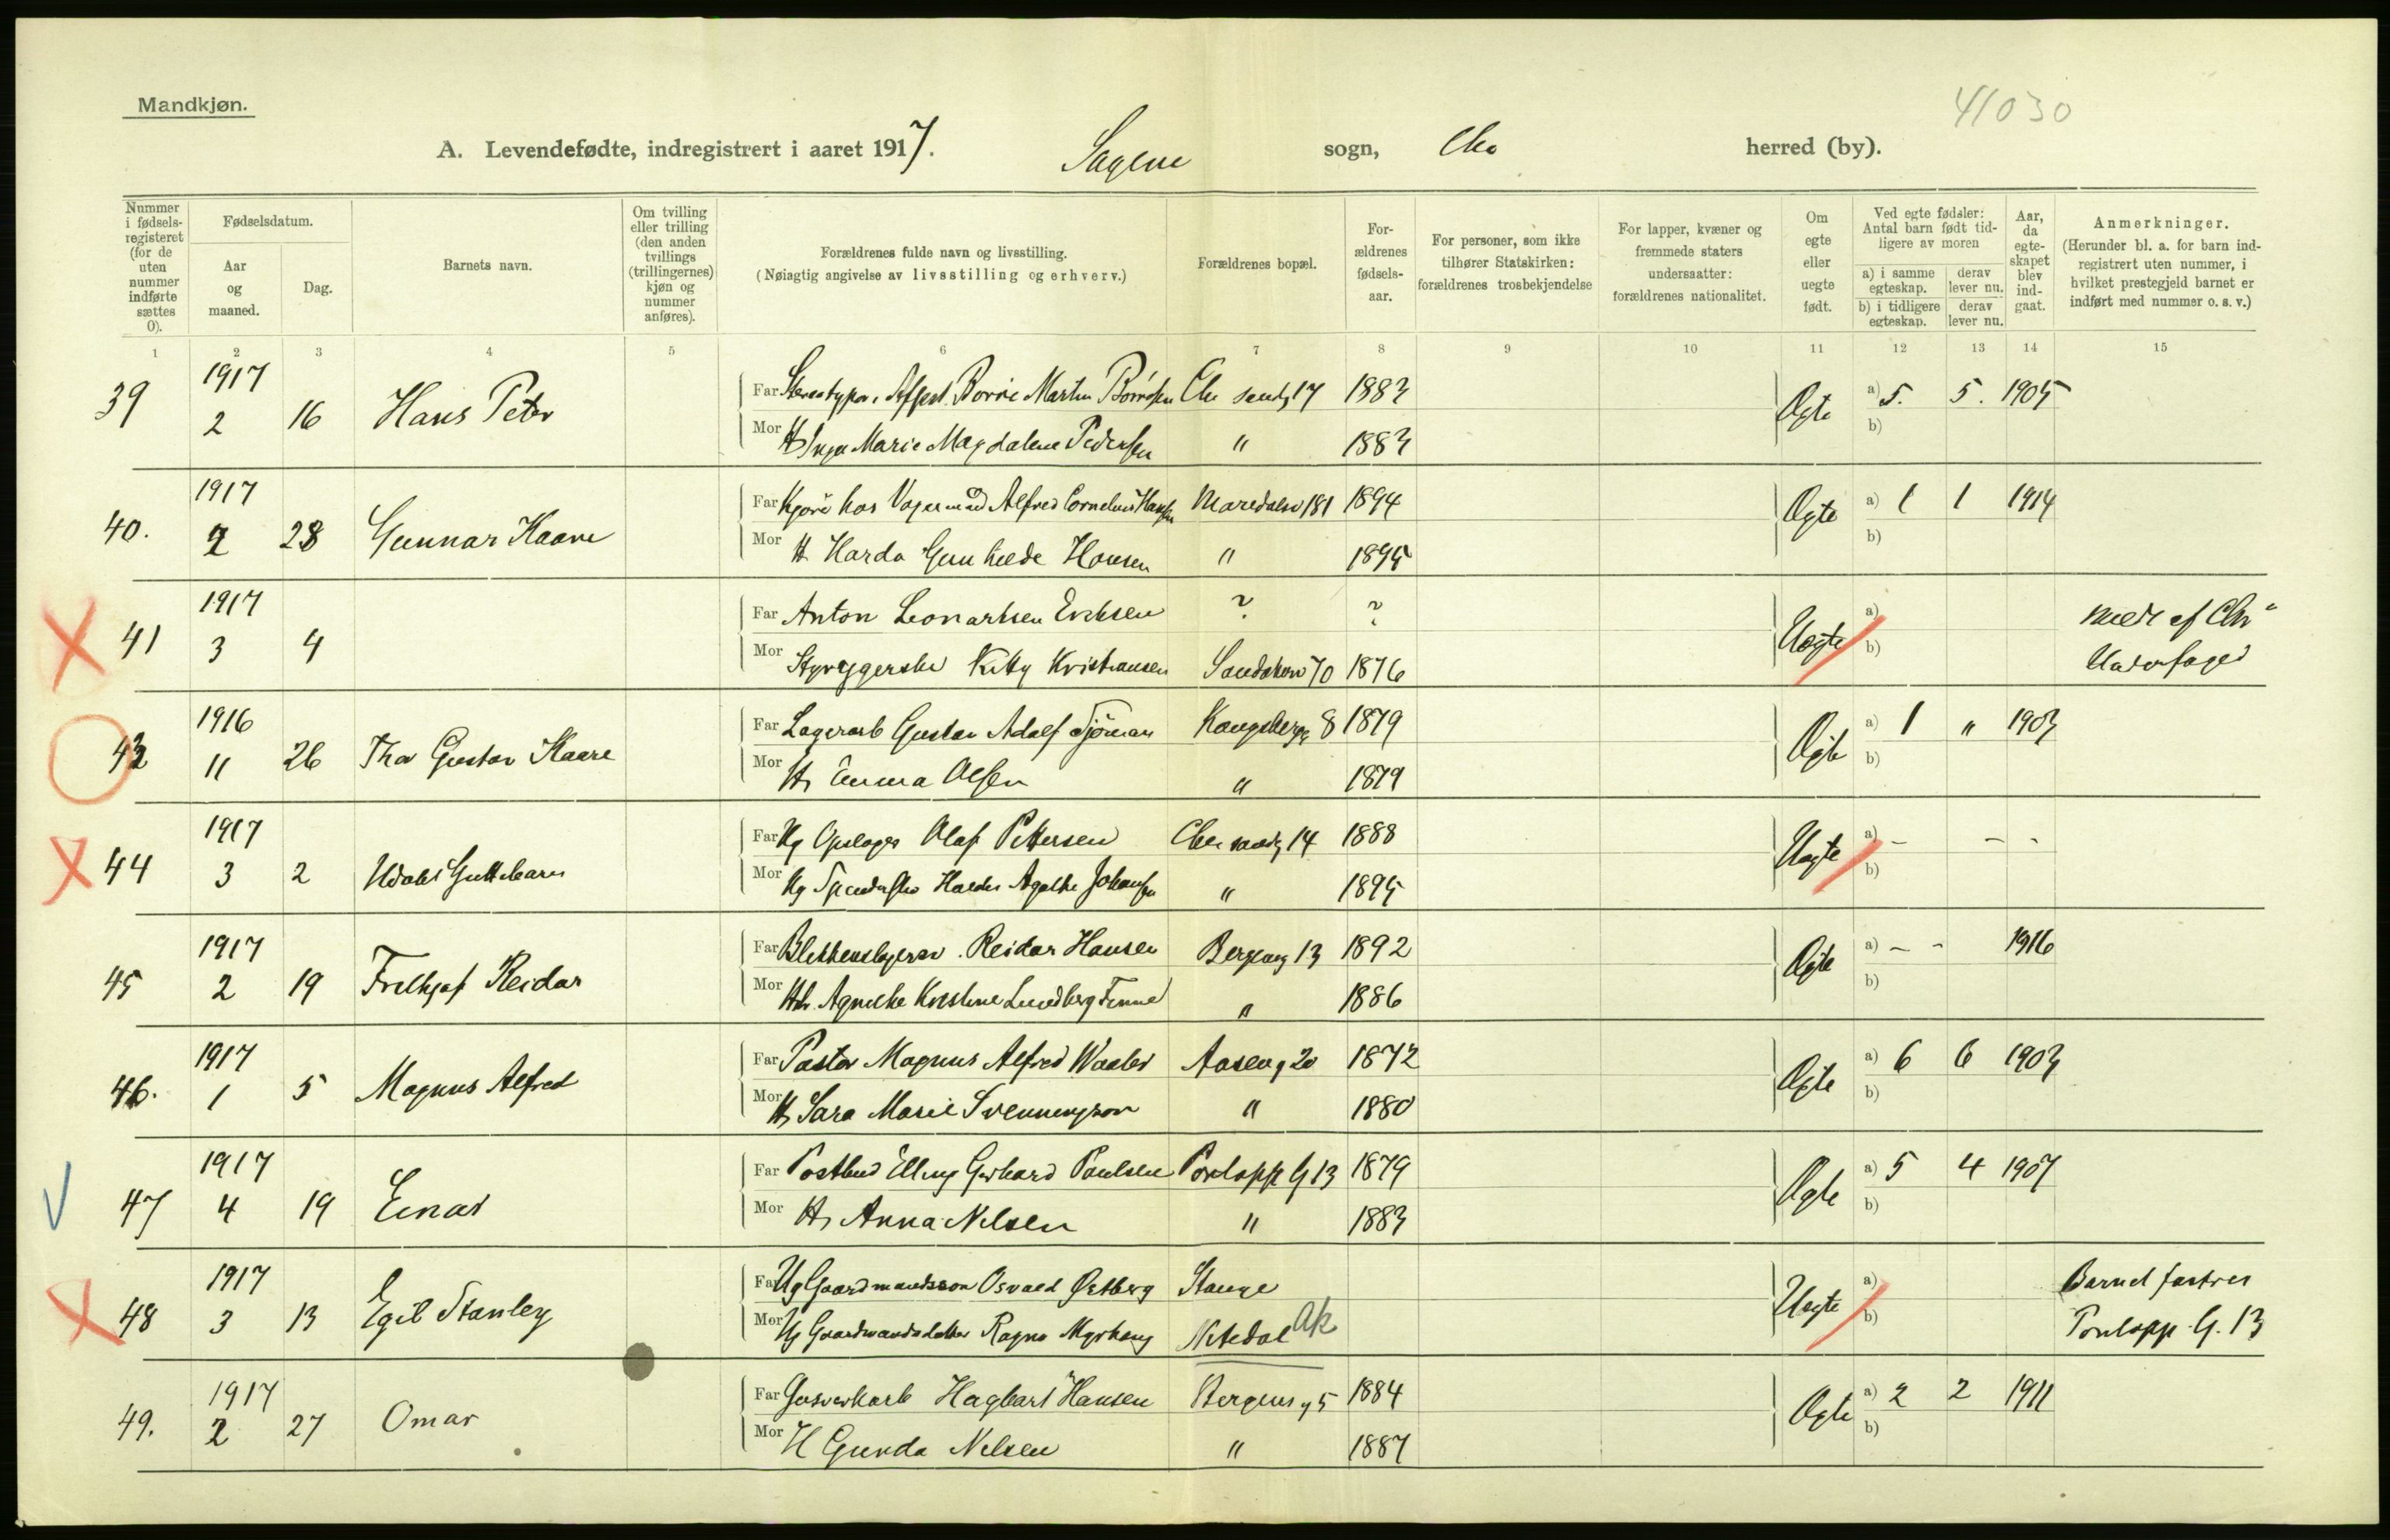 Mandkjøn.
41030
A. Levendefødte, indregistrert i aaret 1917. Sagene sogn, Chra herred (by).
Nummer i fødselsregisteret (for de uten nummer indførte sættes 0).
Fødselsdatum.
Aar og maaned.
Dag.
Barnets navn.
Om tvilling eller trilling (den anden tvillings (trillingernes) kjøn og nummer anføres).
Forældrenes fulde navn og livsstilling.
(Nøiagtig angivelse av livsstilling og erhverv.)
Forældrenes bopæl.
Forældrenes fødselsaar.
For personer, som ikke tilhører Statskirken: forældrenes trosbekjendelse
For lapper, kvæner og fremmede staters undersaatter: forældrenes nationalitet.
Om egte eller uegte født.
Ved egte fødsler: Antal barn født tidligere av moren
a) i samme egteskap. derav lever nu.
b) i tidligere egteskap. derav lever nu.
Aar, da egteskapet blev indgaat.
Anmerkninger.
(Herunder bl. a. for barn indregistrert uten nummer, i hvilket prestegjeld barnet er indført med nummer o. s. v.)
1 2 3 4 5 6 7 8 9 10 11 12 13 14 15
39 1917 2 16 Hans Peter Ægte a) 5. 5. 1905 b)
Far Martin 17 1883
Mor Inga Marie Magdalene Pedersen " 1883
40. 1917 2 28 Gunnar Kaare Ægte a) 1 1 1914 b)
Far Kjøre hos Alfred Cornelius Hansen Maridalsv 181 1894
Mor H. Harda Gunhilde Hansen " 1895
41 1917 3 4 Uegte a) b)
Far Anton Leonartsen Eriksen ? ?
Mor Kitty Kristiansen 70 1876
meldt af Chr"
43 1916 11 26 Thor Gustav Kaare Ægte a) 1 " 1903 b)
Far Lagerarb Gustav Adolf 8 1879
Mor H, Emma Olsen " 1879
44 1917 3 2 Udøbt Guttebarn Uegte a) - - - b)
Far Ug Olaf Pettersen 14 1888
Mor Ug Agathe Johansen " 1895
45 1917 2 19 Fridtjof Reidar Ægte a) - - 1916 b)
Far Blikkenslagersv. Reidar Hansen Bergensg 13 1892
Mor Kristine Lundberg " 1886
46. 1917 1 5 Magnus Alfred Ægte a) 6 6 1903 b)
Far Pastor Magnus Alfred Waaler Aaseng 20 1872
Mor H, Sara Marie Svenningson " 1880
47 1917 4 19 Einar Ægte a) 5 4 1907 b)
Far Postbud Elling Gerhard Paulsen G 13 1879
Mor H, Anna Nilsen " 1883
48 1917 3 13 Egil Stanley Uegte a) b)
Far Ug Gaardmandsson Osvald Østberg Stange
Mor Ug Gaardmandsdatter Ragna Nitedal Ak
Barnet fostres
G. 13
49. 1917 2 27 Omar Ægte a) 2 2 1911 b)
Far Gasverkarb Hagbart Hansen Bergensg 5 1884
Mor H Gunda Nilsen " 1887